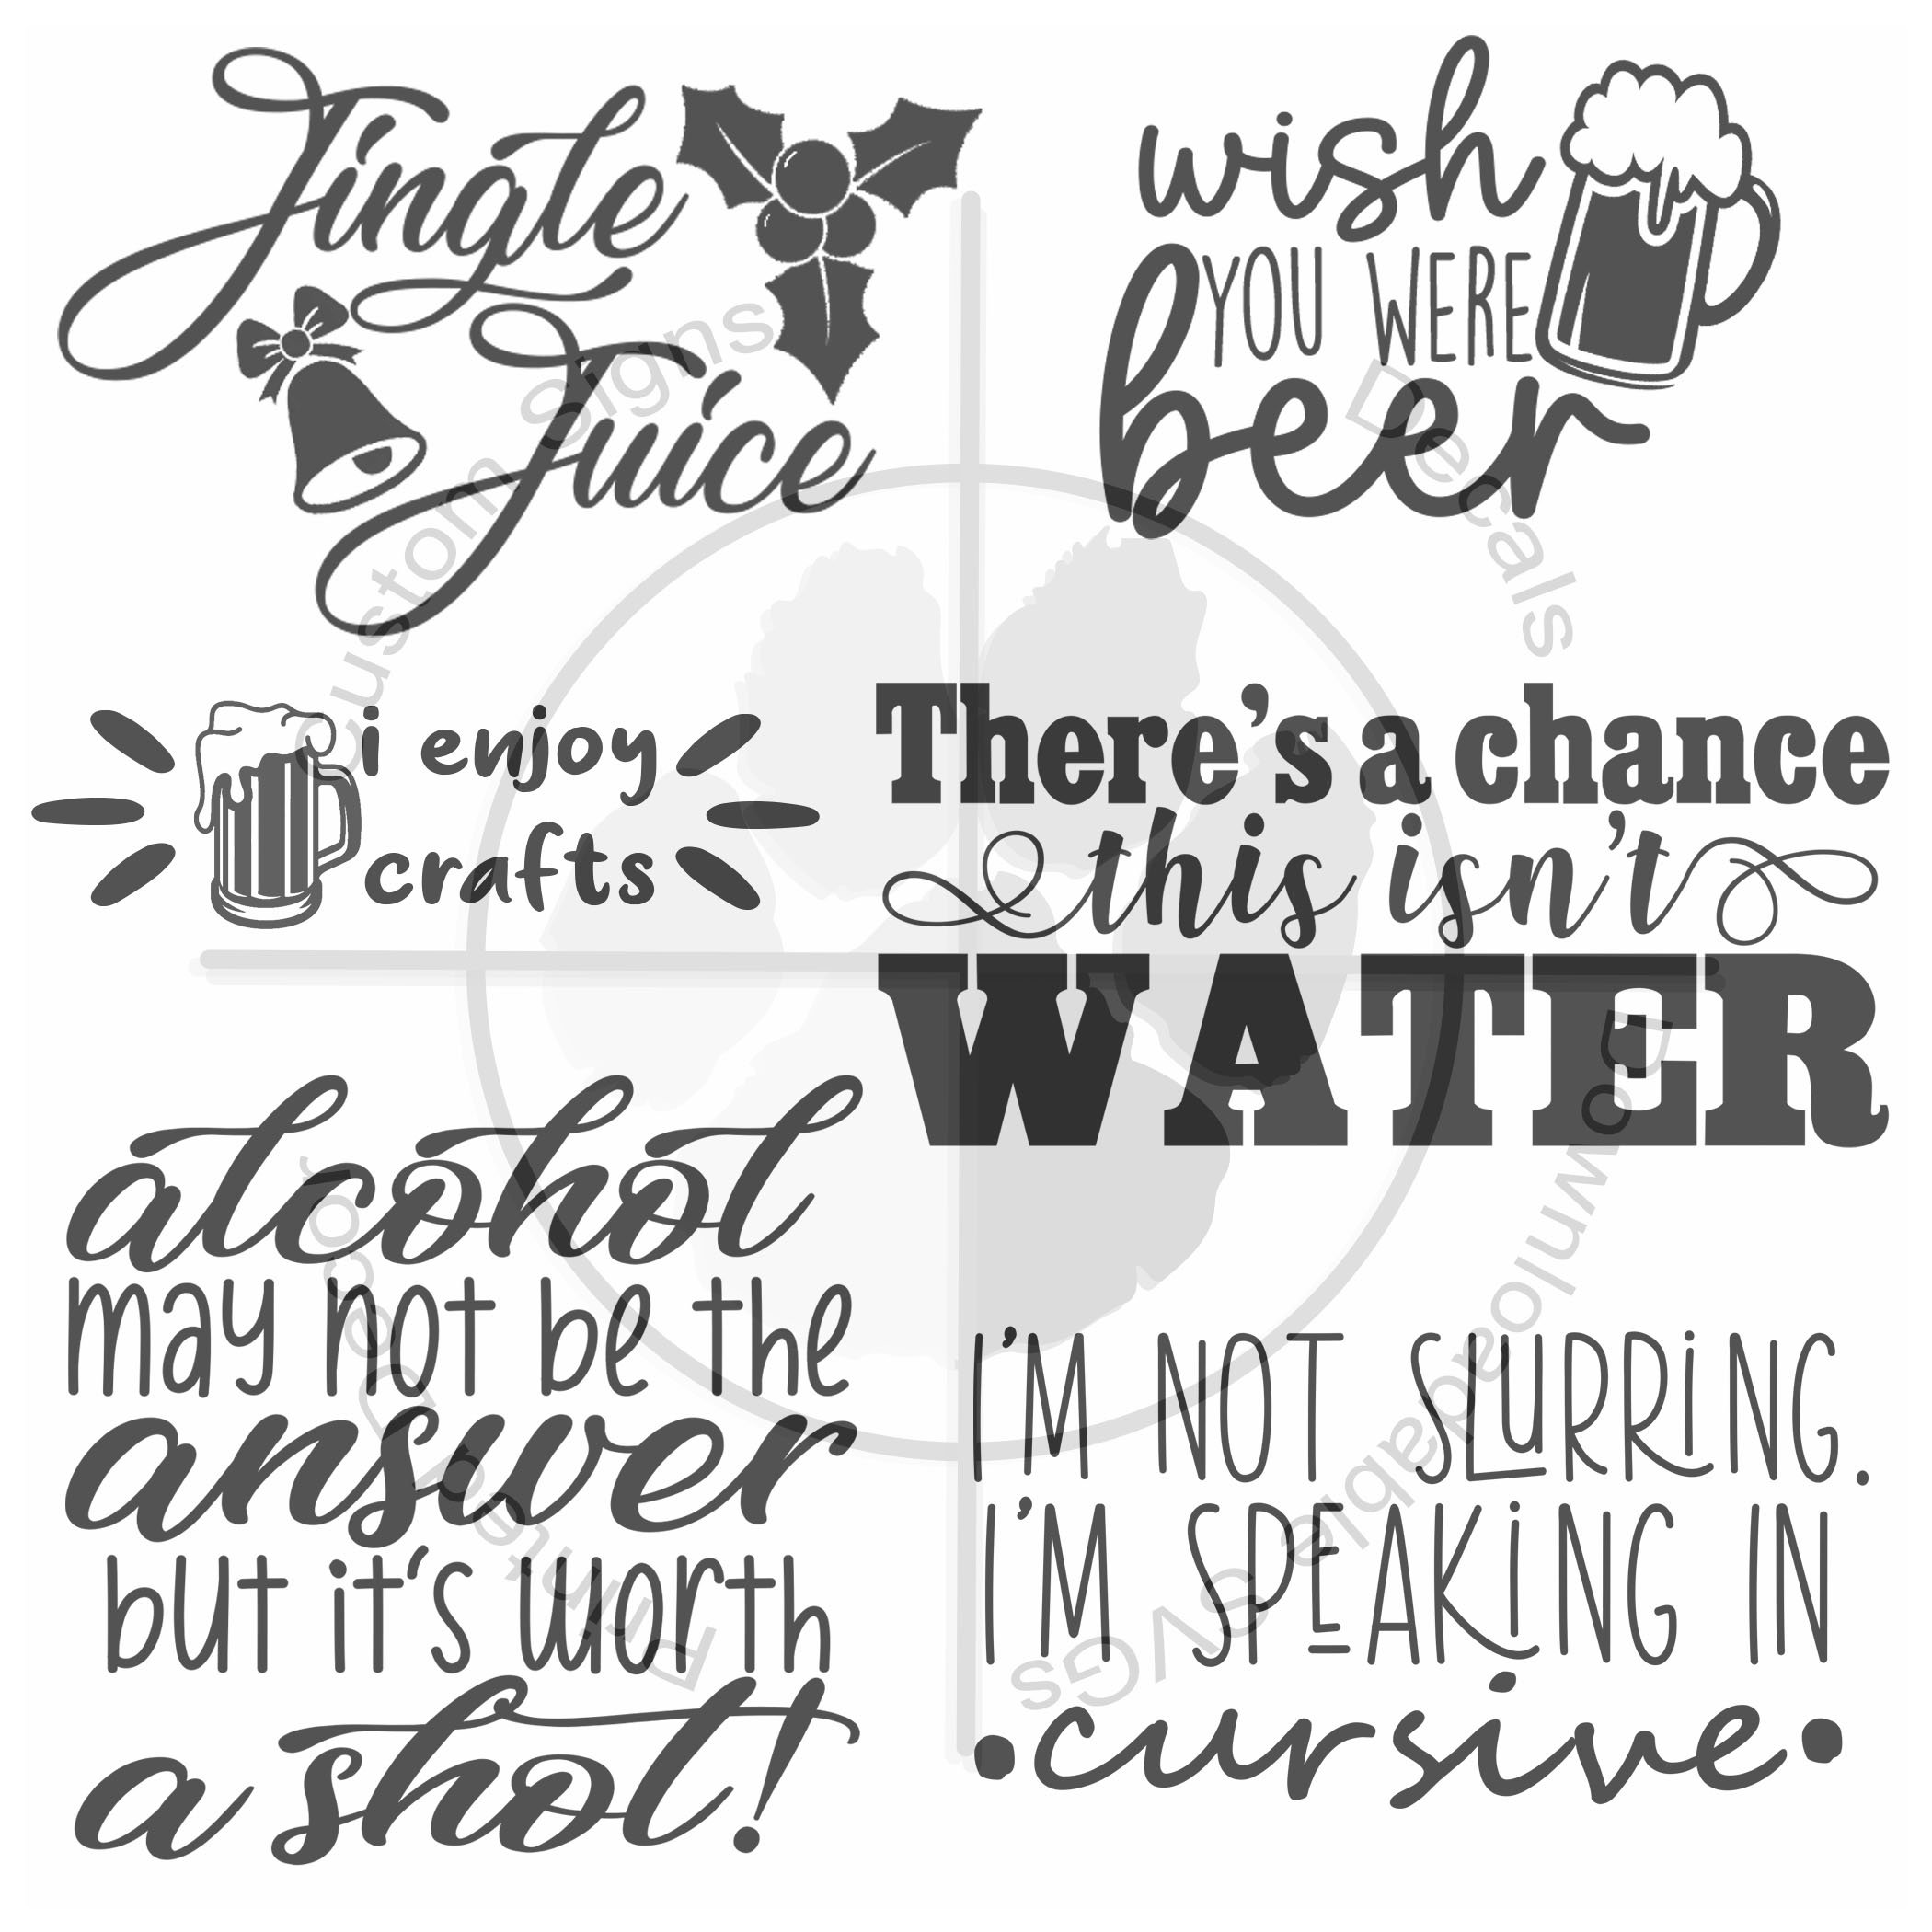 Jingle
Juice
wish
YOU WERE
beer
i enjoy
crafts
There's a chance
this isn't
WATER
alcohol
may not be the
answer
but it's worth
a shot!
I'M NOT SLURRiNG.
I'M SPEAKiNG IN
•cursive•
Custom Signs
Decals
Downloadable SVGs
Printed Decor